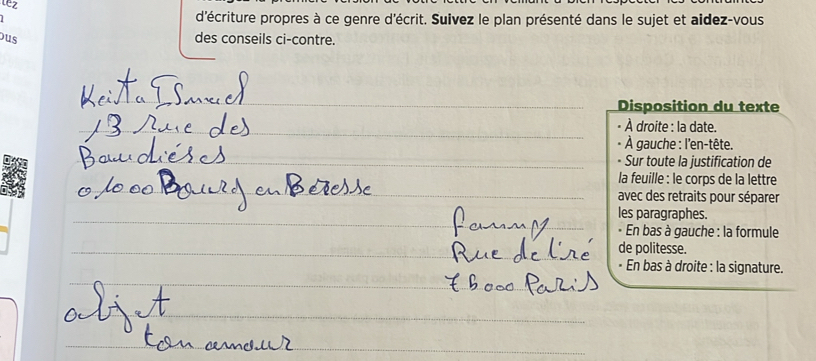 d'écriture propres à ce genre d'écrit. Suivez le plan présenté dans le sujet et aidez-vous
des conseils ci-contre.
Keita Ismael
13 Rue des
Baudiéres
01000 Bourg en Béresse
fanny
Rue de l'iré
76000 Paris
objet
ton amour
Disposition du texte
• À droite : la date.
• À gauche : l'en-tête.
• Sur toute la justification de
la feuille : le corps de la lettre
avec des retraits pour séparer
les paragraphes.
• En bas à gauche : la formule
de politesse.
• En bas à droite : la signature.